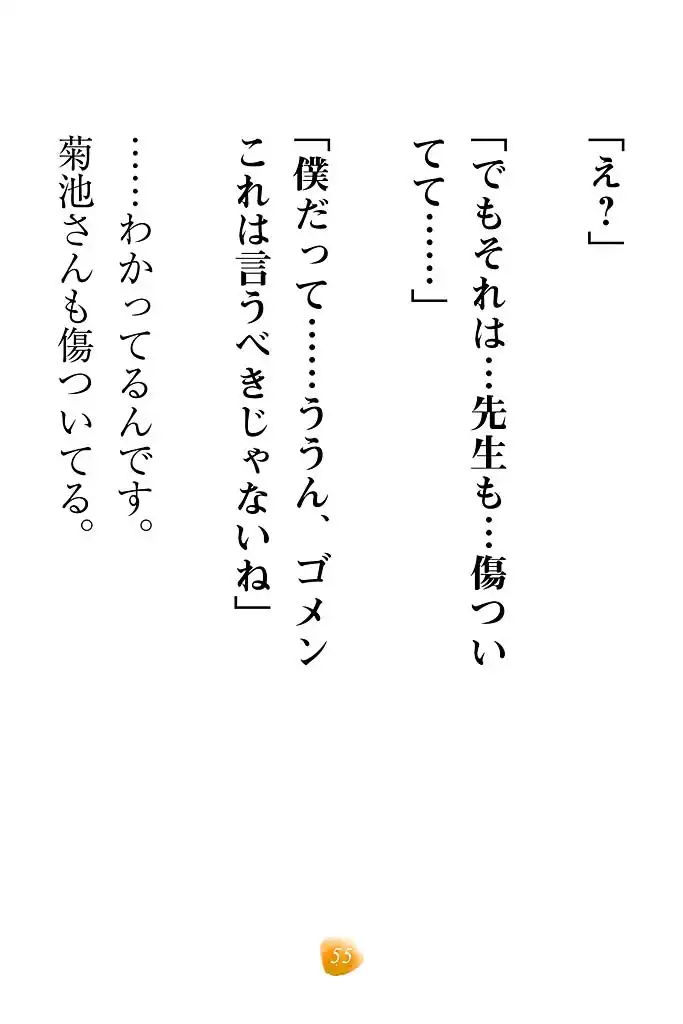 「え？」
「でもそれは…先生も…傷つい
てて……」
「僕だって……ううん、ゴメン
これは言うべきじゃないね」
……わかってるんです。
菊池さんも傷ついてる。
55